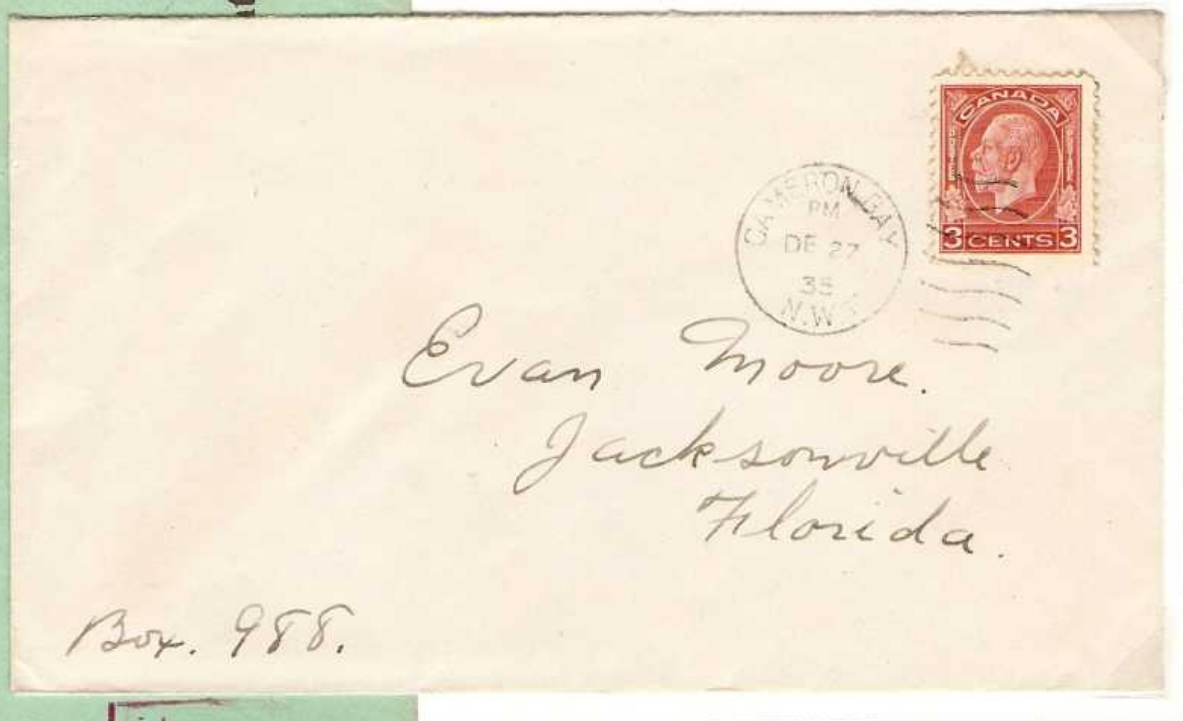 CANADA
POSTES POSTES
3 CENTS 3
CAMERON BAY
PM
DE 27
35
N.W.T.
Evan Moore.
Jacksonville
Florida.
Box. 988.